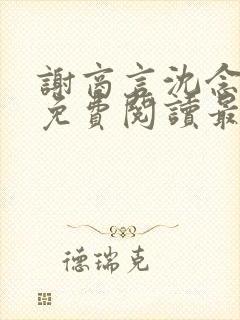 謝商言沈念
免費閱讀最
德瑞克